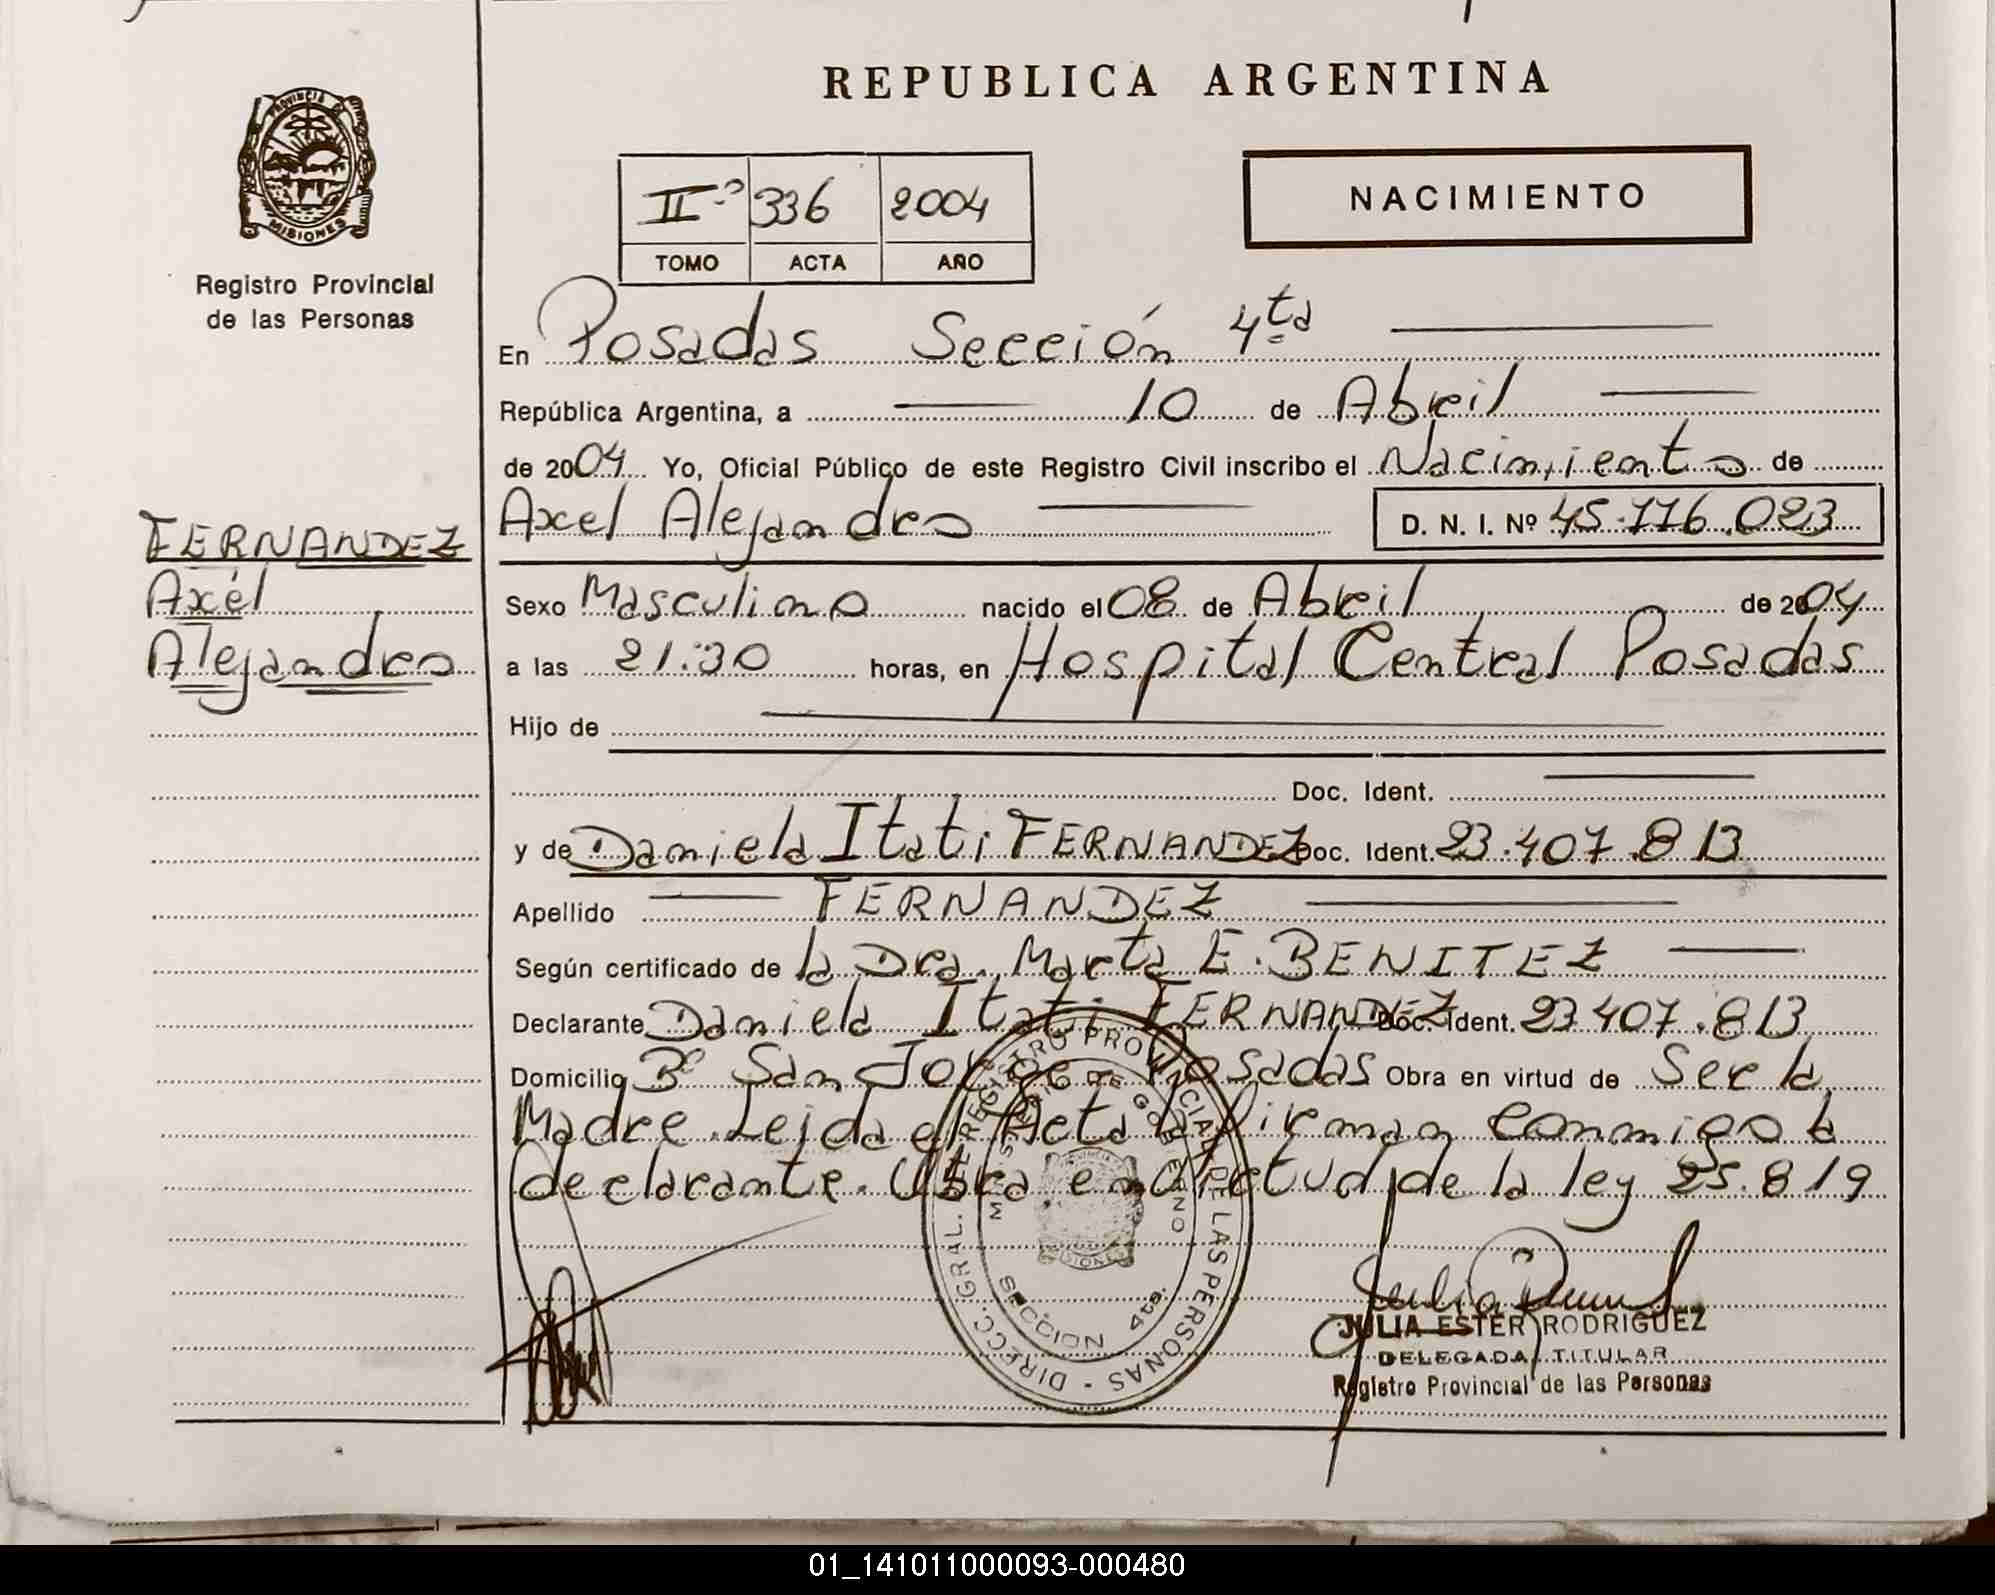 REPUBLICA ARGENTINA
PROVINCIA DE MISIONES
Registro Provincial
de las Personas
IIº 336 2004
TOMO ACTA AÑO
NACIMIENTO
En Posadas Sección 4ta
República Argentina, a 10 de Abril
de 2004 Yo, Oficial Público de este Registro Civil inscribo el Nacimiento de
Axel Alejandro D. N. I. Nº 45.116.023
FERNANDEZ
Axel
Alejandro
Sexo Masculino nacido el 08 de Abril de 2004
a las 21:30 horas, en Hospital Central Posadas
Hijo de
Doc. Ident.
y de Daniela Itati FERNANDEZ Doc. Ident. 23.407.813
Apellido FERNANDEZ
Según certificado de la Dra. Marta E. BENITEZ
Declarante Daniela Itati FERNANDEZ Doc. Ident. 23.407.813
Domicilio Bº San Jorge Posadas Obra en virtud de Ser la
Madre. Leida el Acta la firman conmigo la
declarante. Obra en virtud de la ley 25.819
DIRECC. GRAL. DE REGISTRO PROVINCIAL DE LAS PERSONAS
MINISTERIO DE GOBIERNO
SECCION 4ta.
JULIA ESTER RODRIGUEZ
DELEGADA TITULAR
Registro Provincial de las Personas
01_141011000093-000480